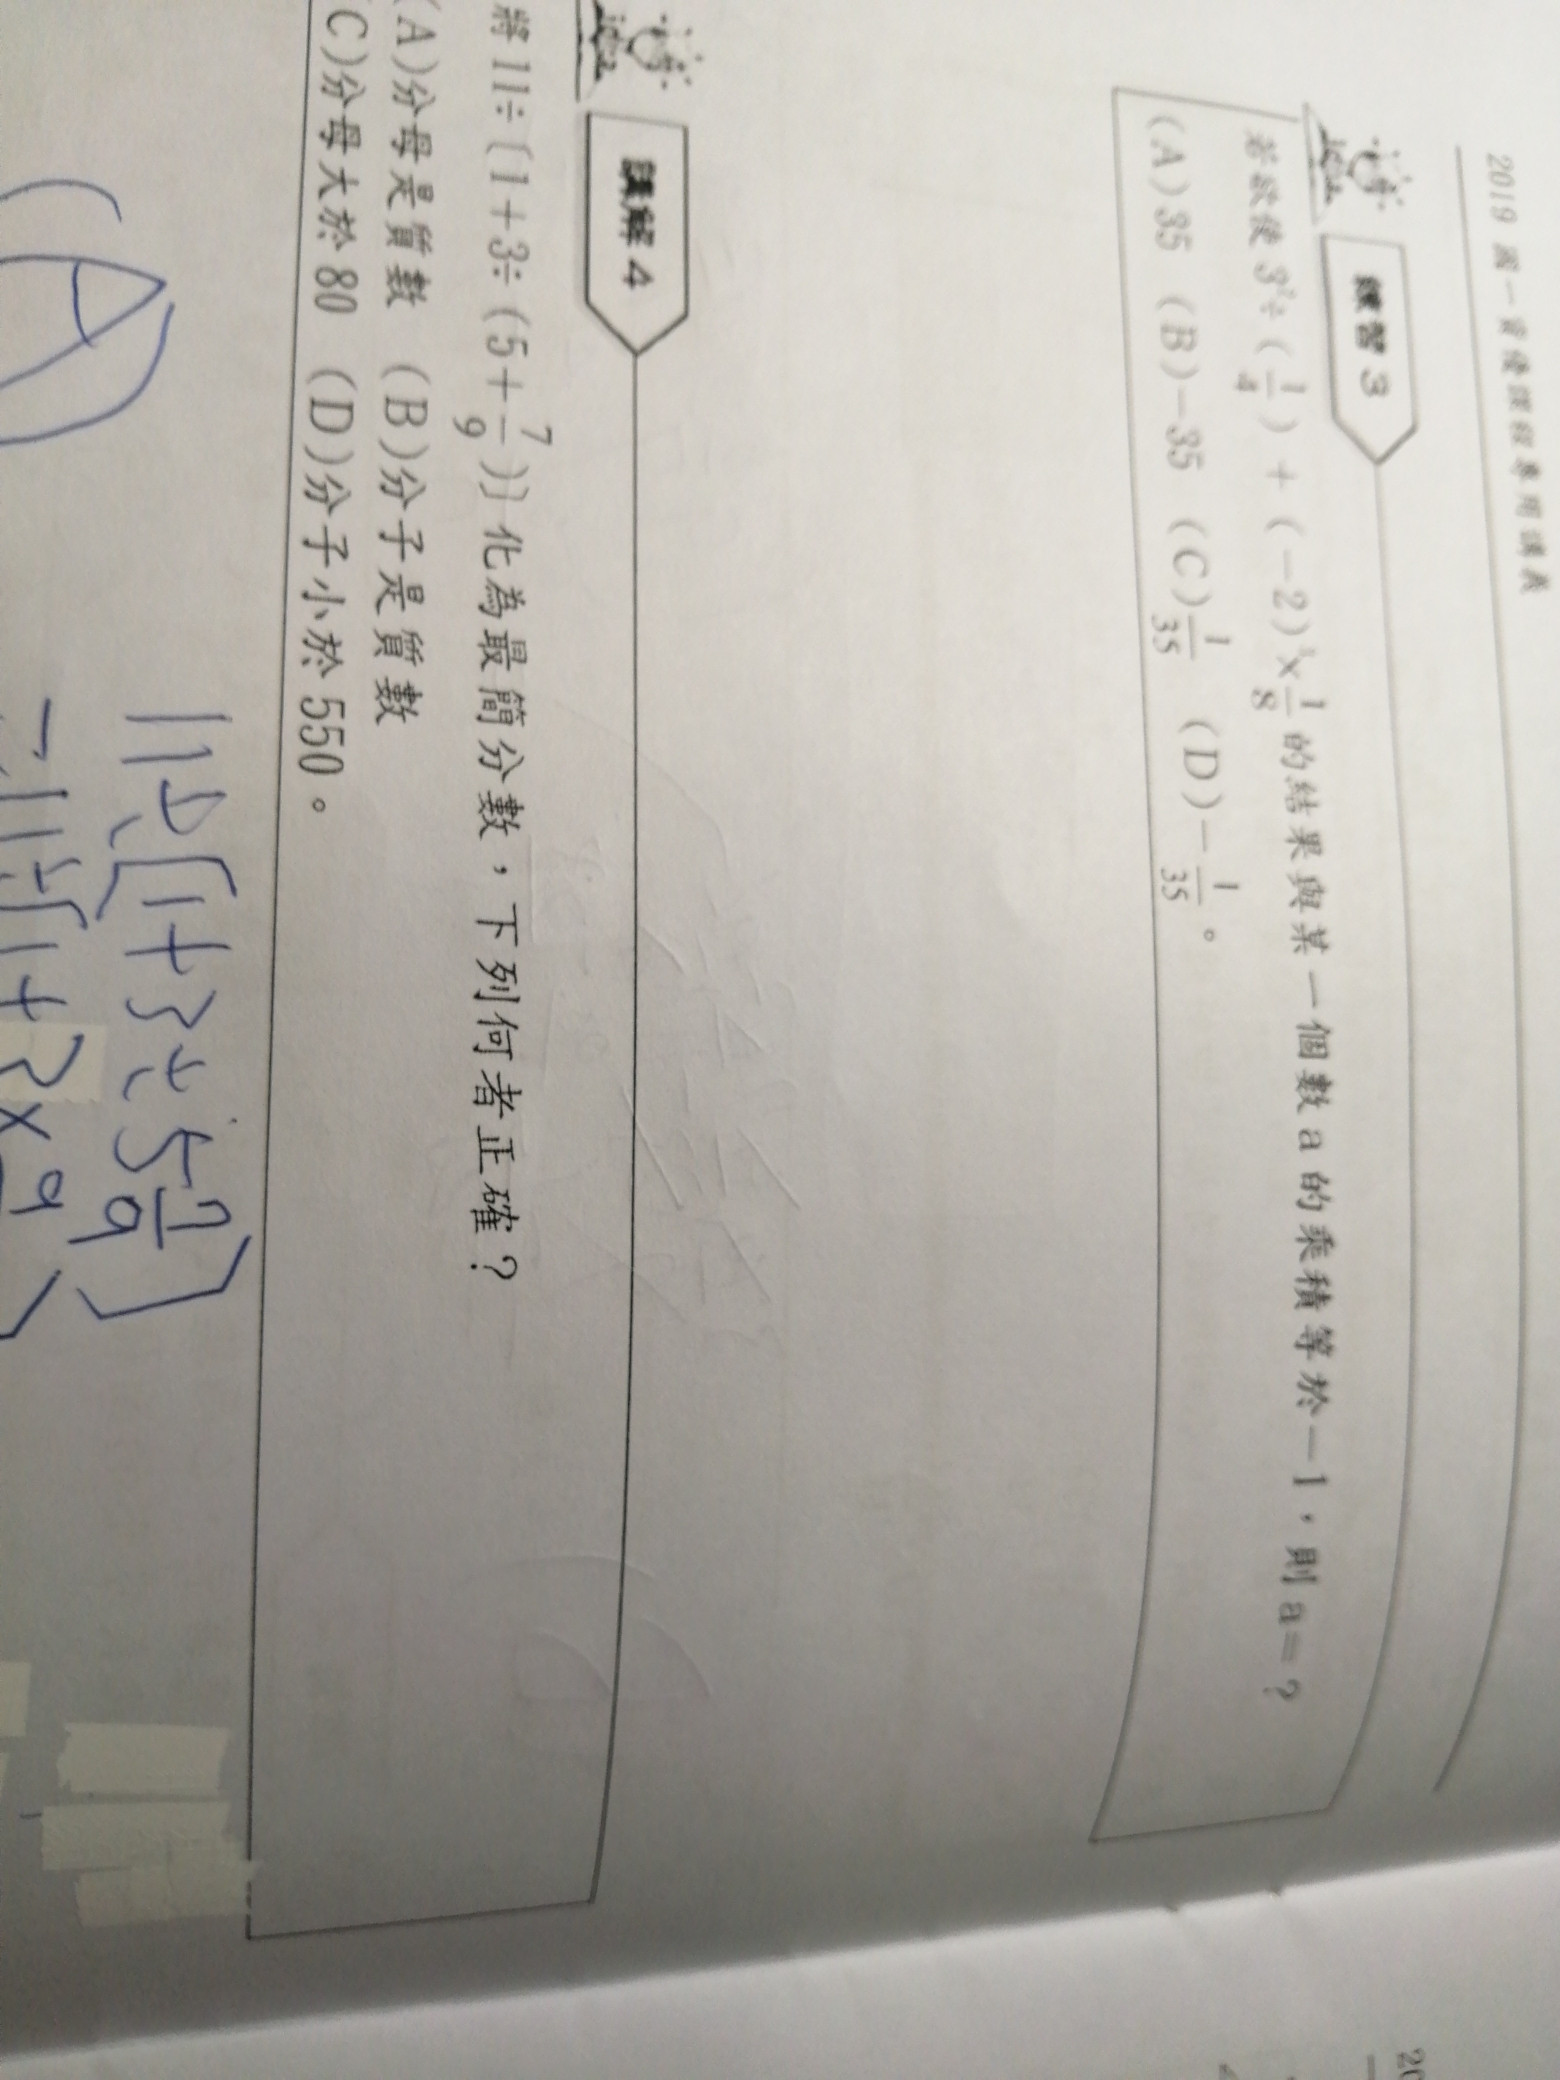 2019 國一資優課程專用講義
idea
練習 3
若欲使 3²÷(1/4)+(-2)³×1/8 的結果與某一個數 a 的乘積等於 -1，則 a=？
(A)35 (B)-35 (C)1/35 (D)-1/35。
idea
講解 4
將 11÷[1+3÷(5+7/9)] 化為最簡分數，下列何者正確？
(A)分母是質數 (B)分子是質數
C)分母大於 80 (D)分子小於 550。
(A)
11÷[1+3÷5 7/9]
=11÷[1+3×9
20